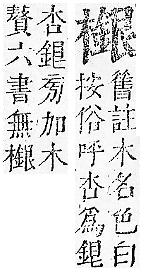 檭
舊註木名色白
按俗呼杏爲銀
杏銀旁加木
贅六書無檭